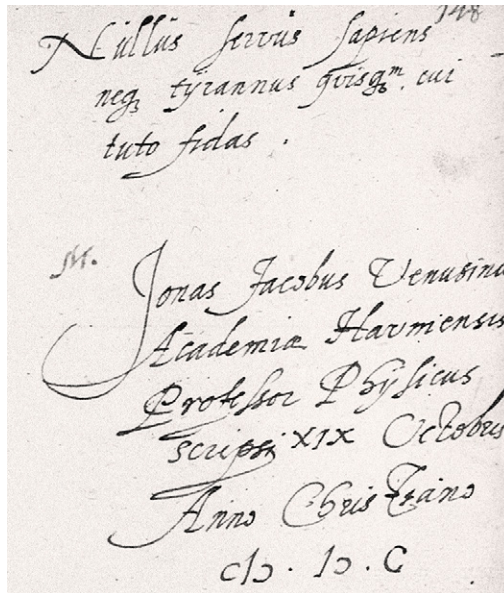 148
Nullus servus sapiens
neqꝫ tyrannus quisqꝫᵐ. cui
tuto fidas.
M. Jonas Jacobus Venusinu
Academiæ Havniensis
Professor Physicus
scripsi XIX Octobris
Anno Christiano
cIↄ. Iↄ. C